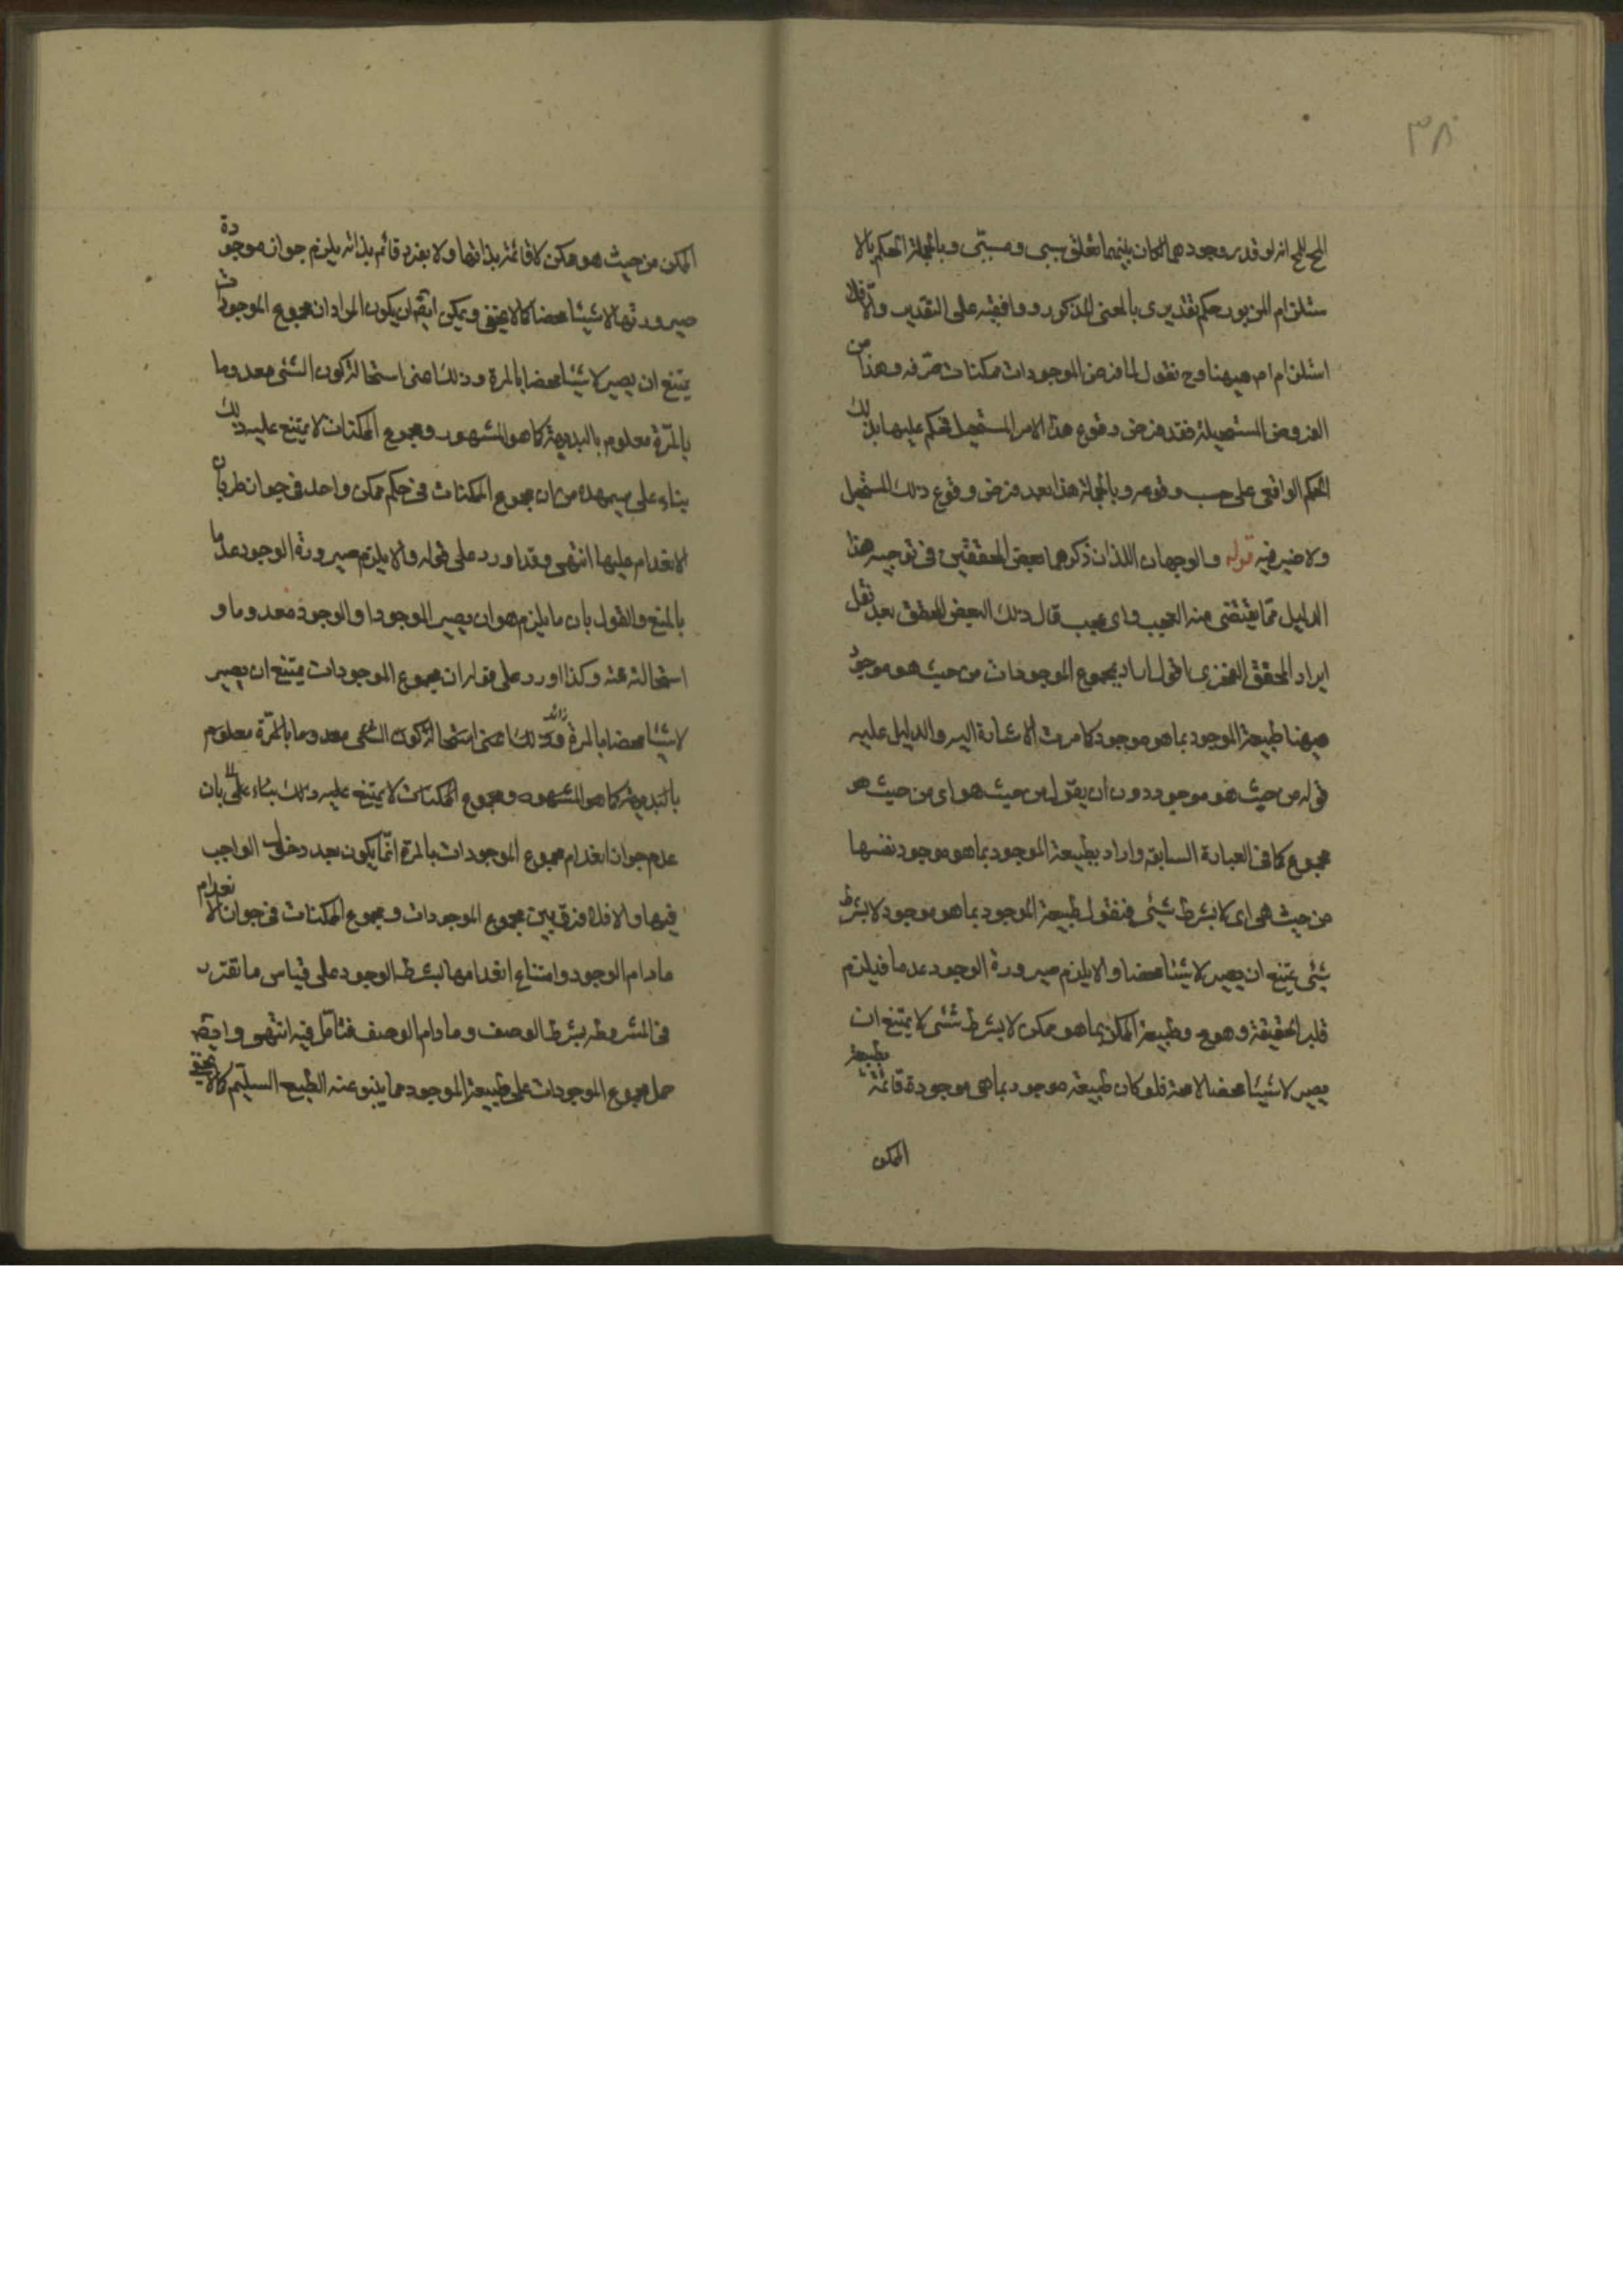 ٣٨
المح للمح انه لو قدر وجودهما لكان بينهما تعلق سببى ومسببى وبالجملة الحكم بالا
ستلزام المزبور حكم تقديرى بالمعنى المذكور ووافيته على التقدير والا فلا
استلزام ام هيهنا وح نقول لما فرض الموجودات ممكنات صرفه وهذا من
الفروض المستحيلة فقد فرض وقوع هذا الامر المستحيل فحكم عليها بذلك
الحكم الواقعى على حسب وقوعه وبالجملة هذا بعد فرض وقوع ذلك المستحيل
ولا ضير فيه قوله والوجهان اللذان ذكرهما بعض المحققين فى توجيه هذا
الدليل مما يقتضى منه العجب واى عجب قال ذلك البعض المحقق بعد نقل
ايراد المحقق الفخرى اقول اراد بمجموع الموجودات من حيث هو موجود
هيهنا طبيعة الموجود بما هو موجود كما مرت الاشارة اليه والدليل عليه
قوله من حيث هو موجود دون ان يقول من حيث هو اى من حيث هو
مجموع كما فى العبارة السابقه واراد بطبيعة الموجود بما هو موجود نفسها
من حيث هى اى لا بشرط شئى فنقول طبيعة الموجود بما هو موجود لا بشرط
شئى يمتنع ان يصير لا شيئا محضا والا يلزم صيرورة الوجود عدما فيلزم
قلب الحقيقة وهو مح وطبيعة الممكن بما هو ممكن لا بشرط شئى لا يمتنع ان
يصير لا شيئا محضا لا محة فلو كان طبيعة موجود بما هى موجودة قائمة بطبيعة
الممكن
الممكن من حيث هو ممكن لا قائمة بذاتها ولا بفرد قائم بذاته يلزم جواز موجودة
صيرورتها لا شيئا محضا كما لا يخفى ويمكن ايضا ان يكون المراد ان مجموع الموجودات
يمتنع ان يصير لا شيئا محضا بالمرة وذلك اعنى استحالة كون الشئى معدوما
بالمرة معلوم بالبديهة كما هو المشهور ومجموع الممكنات لا يمتنع عليه ذلك
بناء على سيمهده من ان مجموع الممكنات فى حكم ممكن واحد فى جواز طريان
الانعدام عليها انتهى وقد اورد على قوله والا يلزم صيرورة الوجود عدما
بالمنع والقول بان ما يلزم هو ان يصير الموجود او الوجود معدوما و
استحالته عنه وكذا اورد على قوله ان مجموع الموجودات يمتنع ان يصير
لا شيئا محضا بالمرة وذلك اعنى استحالة كون الشئى معدوما بالمرة معلوم
زائد
بالبديهة كما هو المشهور ومجموع الممكنات لا يمتنع عليه ذلك بناء على بان
عدم جواز انعدام مجموع الموجودات بالمرة انما يكون بعد دخول الواجب
فيها والا فلا فرق بين مجموع الموجودات ومجموع الممكنات فى جواز الانعدام
مادام الوجود وامتناع انعدامها بشرط الوجود على قياس ما تقرر
فى المشروطه بشرط الوصف ومادام الوصف فتامل فيه انتهى وايضا
حمل مجموع الموجودات على طبيعة الموجود مما ينبو عنه الطبع السليم كما لا يخفى